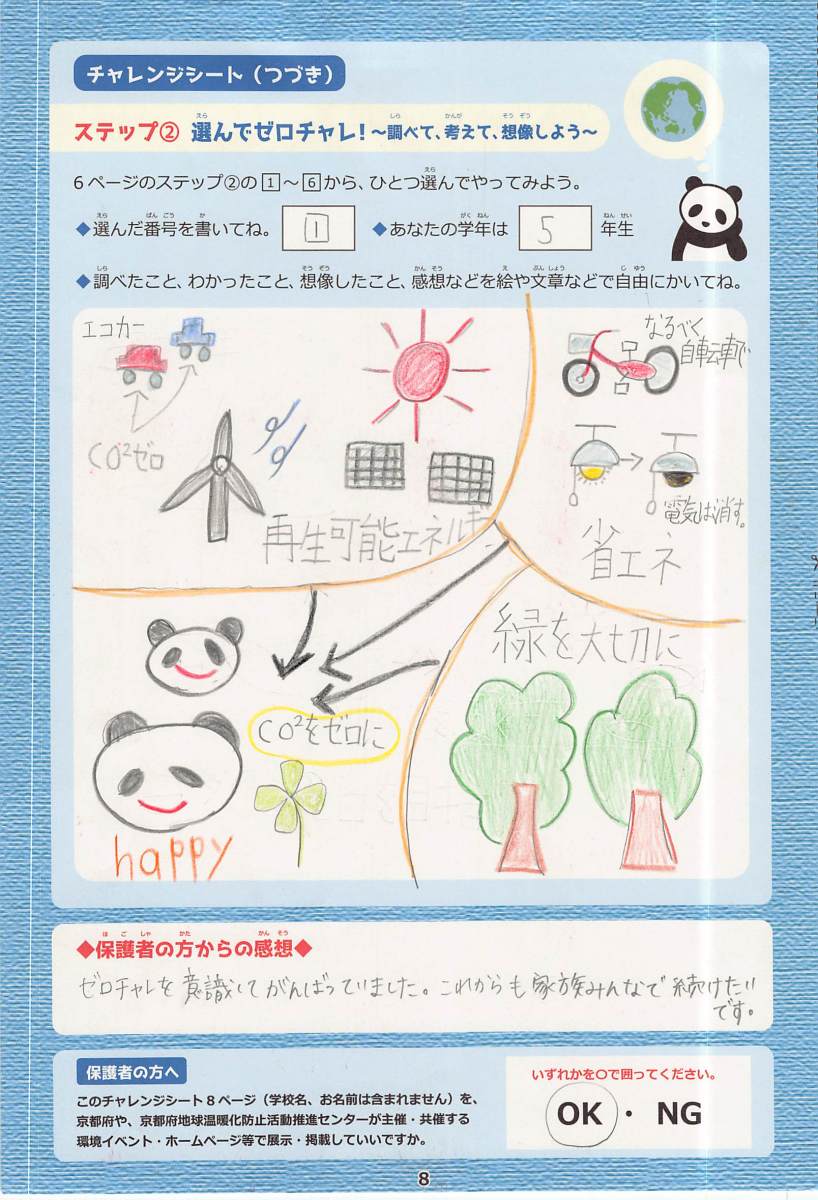 チャレンジシート（つづき）
ステップ② 選んでゼロチャレ！～調べて、考えて、想像しよう～
6ページのステップ②の1～6から、ひとつ選んでやってみよう。
◆選んだ番号を書いてね。 1 ◆あなたの学年は 5 年生
◆調べたこと、わかったこと、想像したこと、感想などを絵や文章などで自由にかいてね。
エコカー
CO²ゼロ
再生可能エネルギー
なるべく
自転車で
電気は消す。
省エネ
緑を大切に
CO²をゼロに
happy
◆保護者の方からの感想◆
ゼロチャレを意識してがんばっていました。これからも家族みんなで続けたい
です。
保護者の方へ
このチャレンジシート8ページ（学校名、お名前は含まれません）を、
京都府や、京都府地球温暖化防止活動推進センターが主催・共催する
環境イベント・ホームページ等で展示・掲載していいですか。
いずれかを○で囲ってください。
OK ・ NG
8